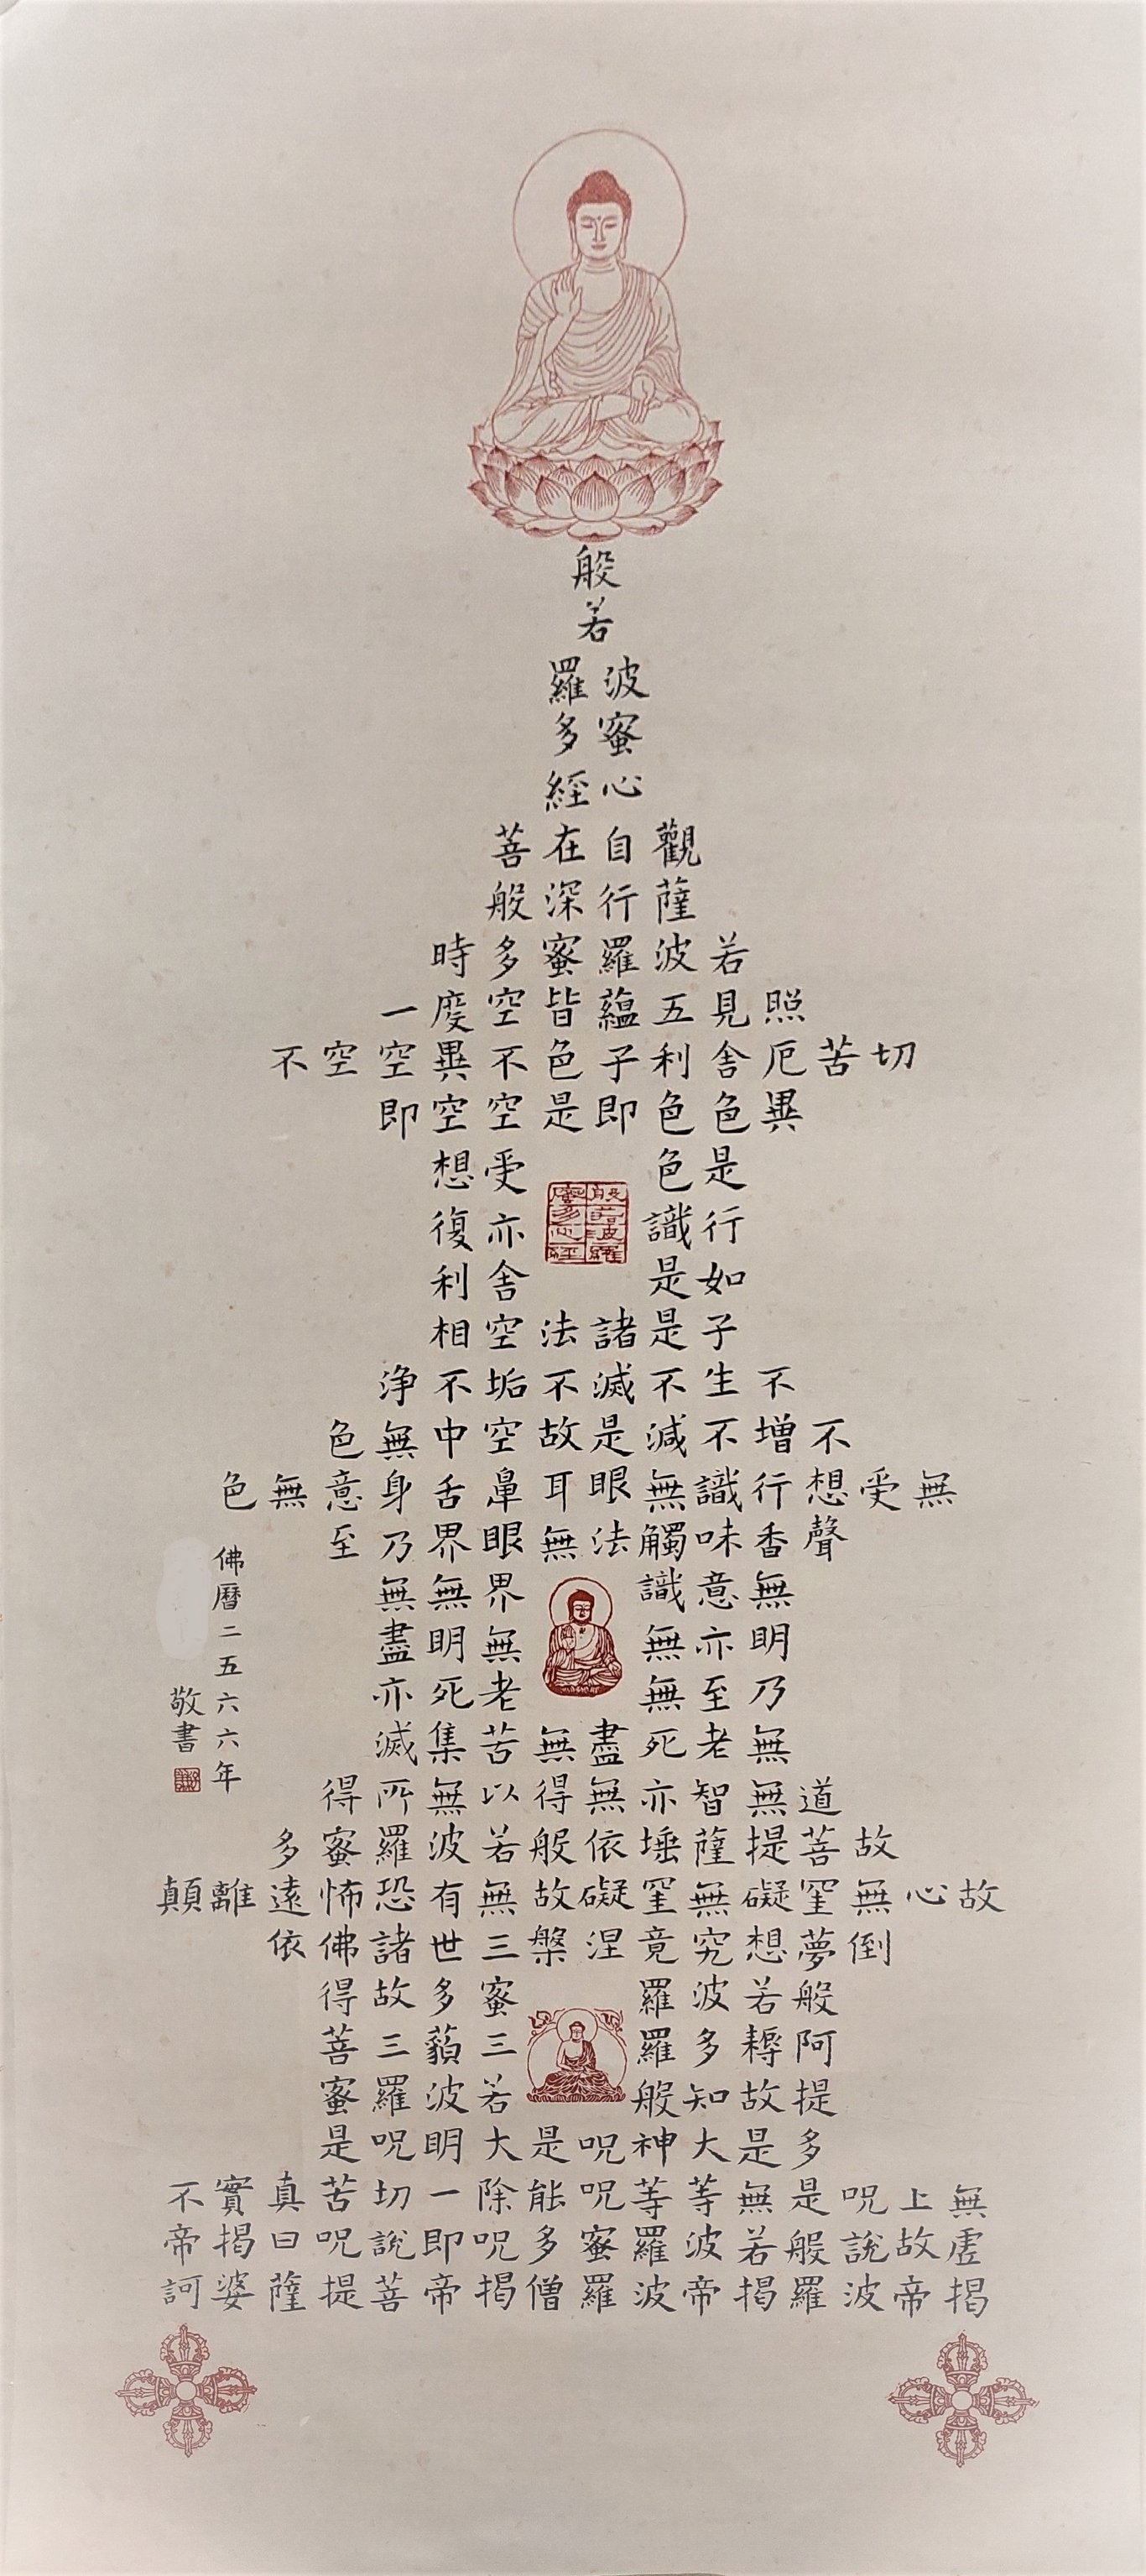 般
若
波羅
蜜多
心經
觀自在菩
薩行深般
若波羅蜜多時
照見五蘊皆空度一
切苦厄舍利子色不異空空不
異色色即是空空即
是色受想
行識亦復
如是舍利
子是諸法空相
不生不滅不垢不浄
不增不減是故空中無色
無受想行識無眼耳鼻舌身意無色
聲香味觸法無眼界乃至
無意識界無無
明亦無無明盡
乃至無老死亦
無老死盡無苦集滅
道無智亦無得以無所得
故菩提薩埵依般若波羅蜜多
故心無罣礙無罣礙故無有恐怖遠離顛
倒夢想究竟涅槃三世諸佛依
般若波羅蜜多故得
阿耨多羅三藐三菩
提故知般若波羅蜜
多是大神呪是大明呪是
無上呪是無等等呪能除一切苦真實不
虛故說般若波羅蜜多呪即說呪曰揭帝
揭帝波羅揭帝波羅僧揭帝菩提薩婆訶
般若波羅
蜜多心經
佛曆二五六六年
敬書